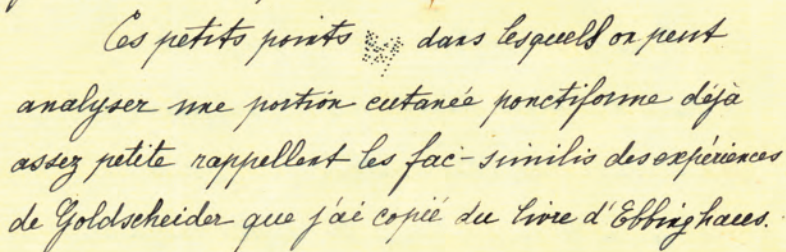 Ces petits points dans lesquels on peut
analyser une portion cutanée ponctiforme déjà
assez petite rappellent les fac-similis des expériences
de Goldscheider que j'ai copié du livre d'Ebbinghaus.